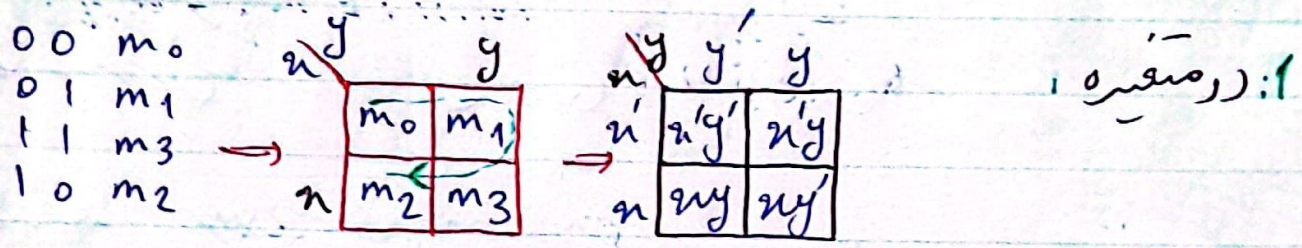 1: دو متغیره:
0 0 m0
0 1 m1
1 1 m3
1 0 m2
⇒
x y y
m0 m1
x m2 m3
⇒
x y y' y
x' x'y' x'y
x xy xy'